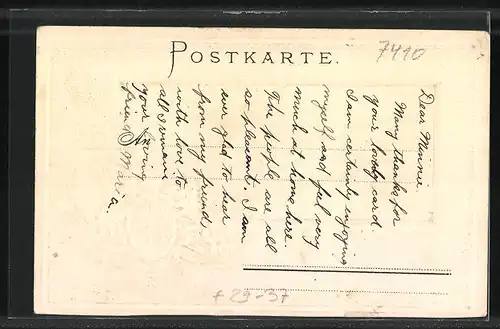 POSTKARTE.
7410
Dear Minnie.
Many thanks for
your lovely card.
I am certainly enjoying
myself and feel very
much at home here.
The people are all
so pleasant. I am
ever glad to hear
from my friends.
with love to
all I remain
your loving
friend Maria.
+ 29-37